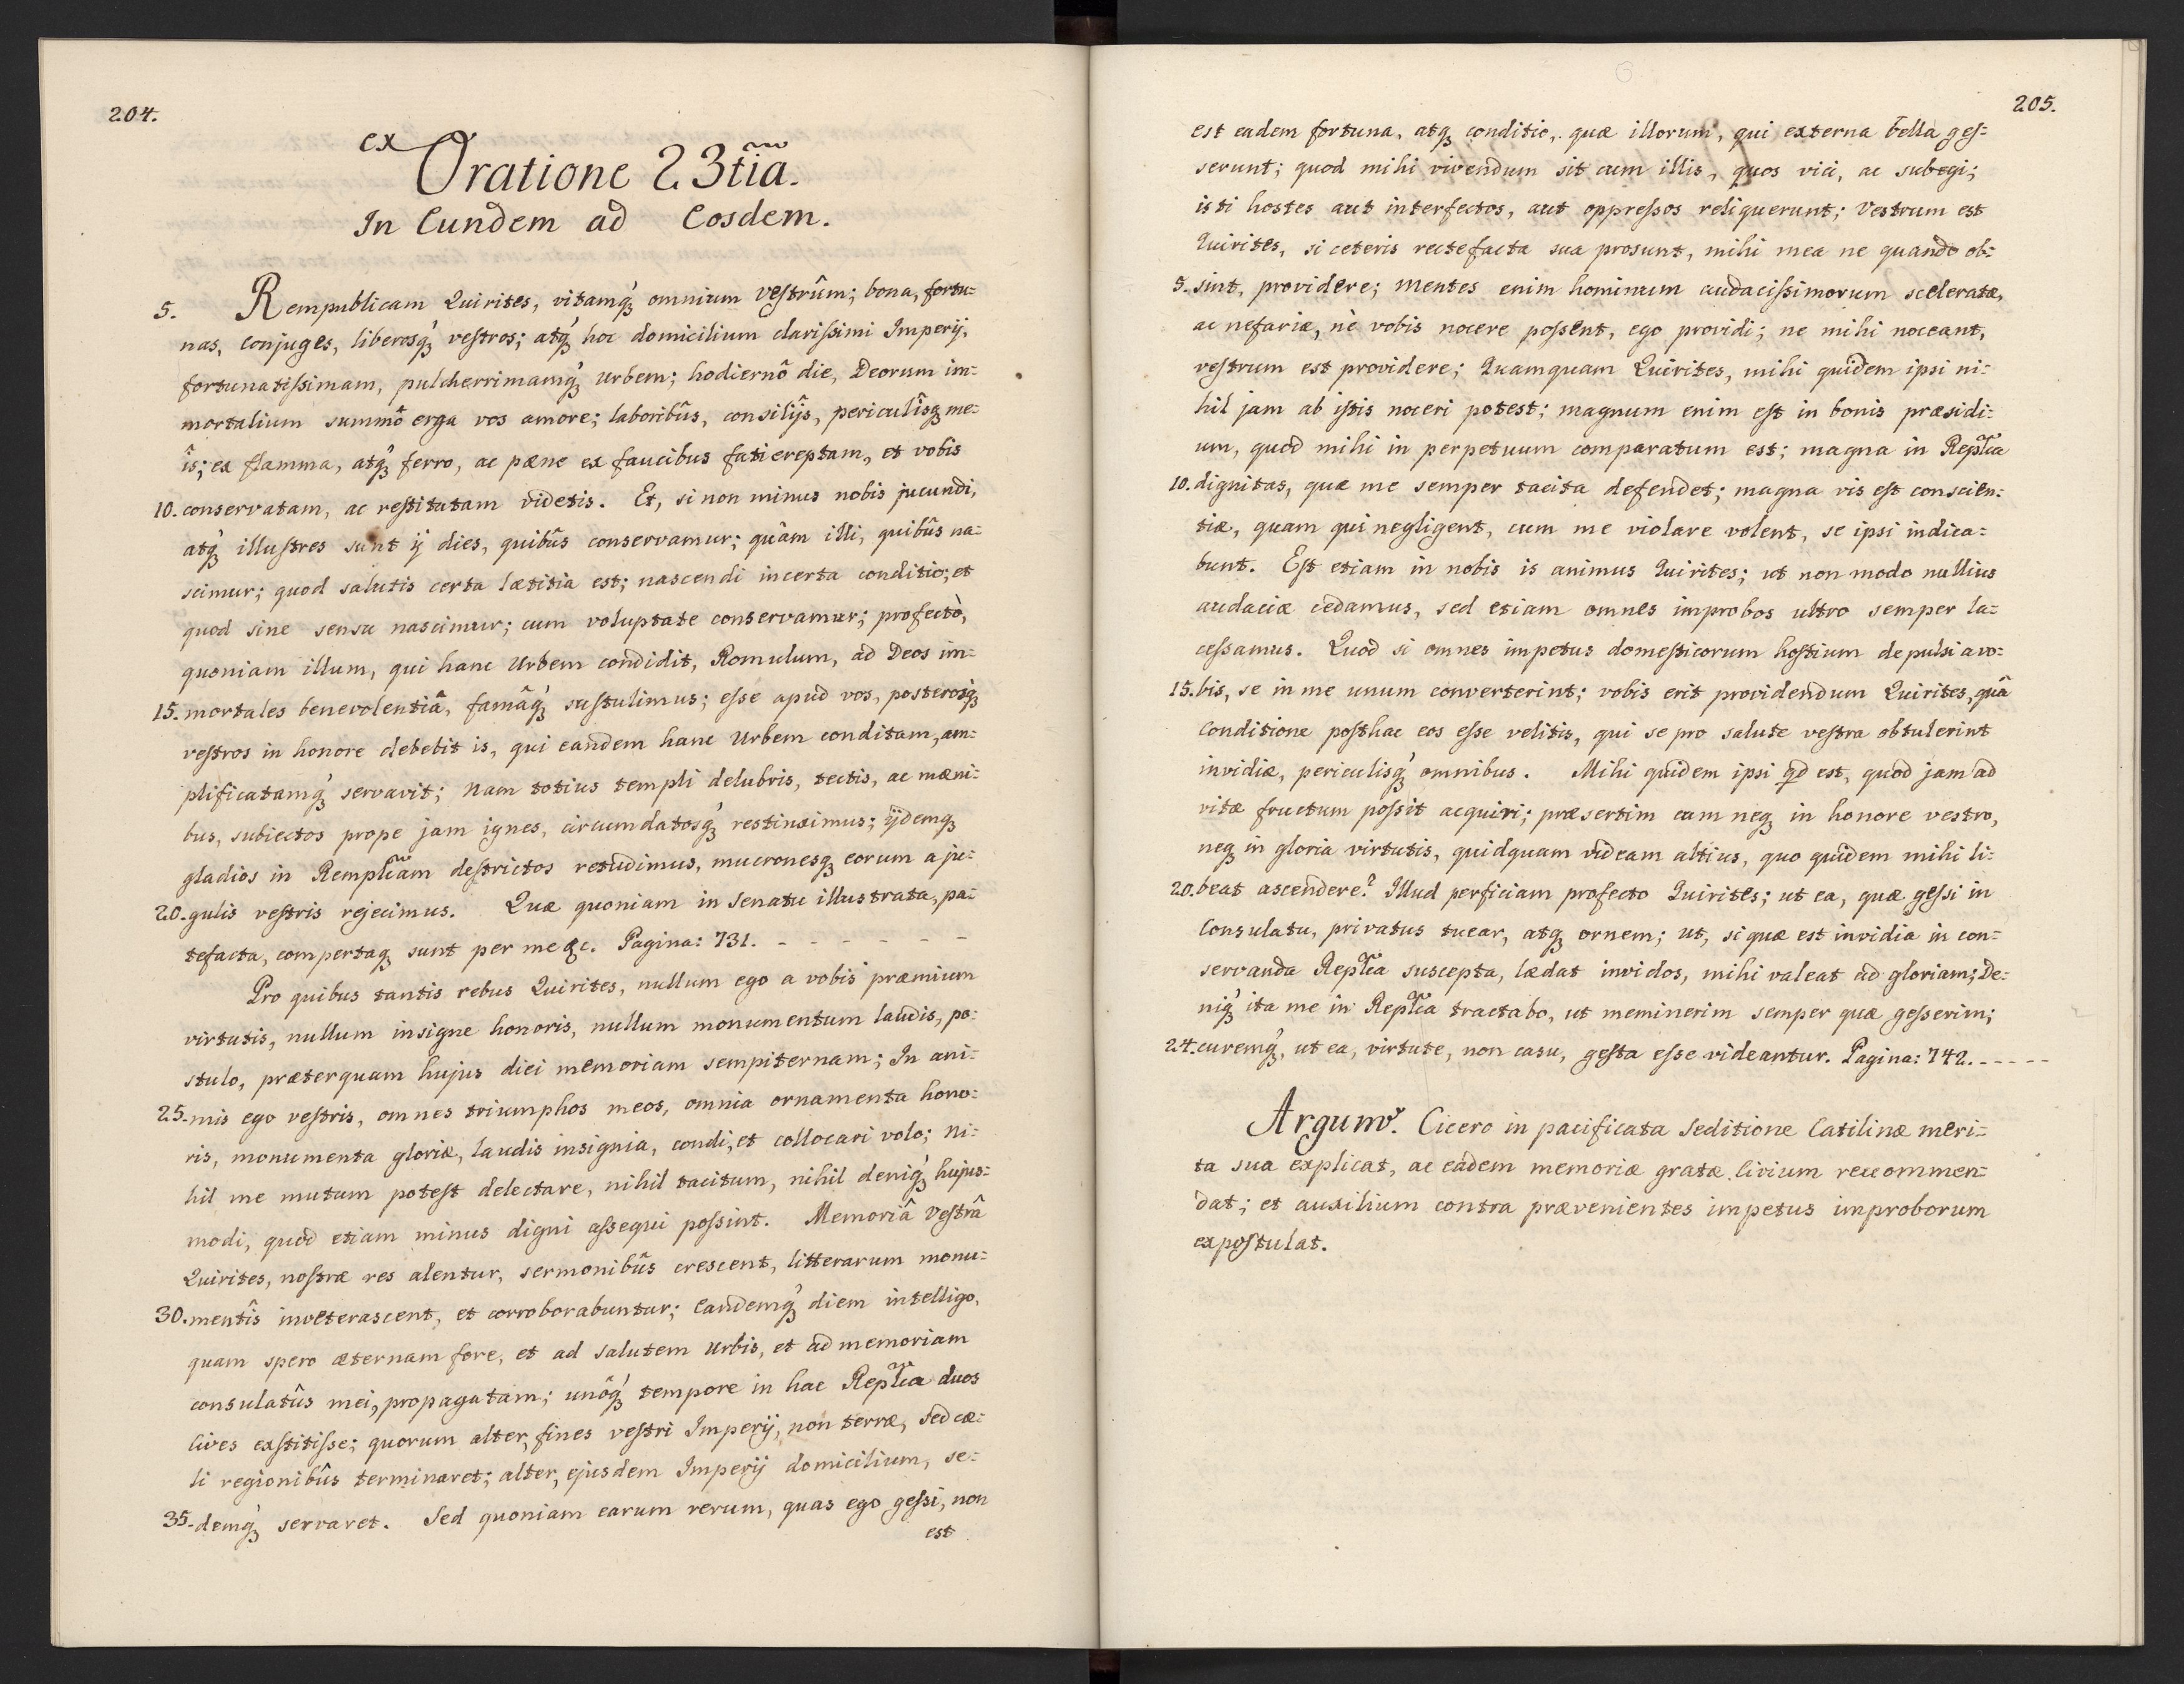 204.
ex Oratione 23tia.
In Eundem ad Eosdem.
5. Rempublicam Quirites, vitamq́ꝫ omnium vestrûm; bona, fortu=
nas, conjuges, liberosq́ꝫ vestros; atq́ꝫ hoc domicilium clarissimi Imperij,
fortunatissimam, pulcherrimamq́ꝫ Urbem; hodiernô die, Deorum im=
mortalium summô erga vos amore; laboribûs, consilijs, periculîsqꝫ me=
îs; ex flamma, atq́ꝫ ferro, ac pæne ex faucibus fati ereptam, et vobis
10. conservatam, ac restitutam videtis. Et, si non minus nobis jucundi,
atq́ꝫ illustres sunt ij dies, quibûs conservamur; quâm illi, quibûs na=
scimur; quod salutis certa lætitia est; nascendi incerta conditio; et
quod sine sensu nascimur; cum voluptate conservamur; profectò,
quoniam illum, qui hanc Urbem condidit, Romulum, ad Deos im=
15. mortales benevolentiâ, famâq́ꝫ sustulimus; esse apud vos, posterosq́ꝫ
vestros in honore debebit is, qui eandem hanc Urbem conditam, am=
plificatamq́ꝫ servavit; Nam totius templi delubris, tectis, ac mæni=
bus, subiectos prope jam ignes, circumdatosq́ꝫ restinximus; ijdemqꝫ
gladios in Remplicam destrictos retudimus, mucronesqꝫ eorum a ju=
20. gulis vestris rejecimus. Quæ quoniam in Senatu illustrata, pa=
tefacta, compertaqꝫ sunt per me &c. Pagina: 731. - - - - - -
Pro quibus tantis rebus Quirites, nullum ego a vobis præmium
virtutis, nullum insigne honoris, nullum monumentum laudis, po=
stulo, præterquam hujus diei memoriam sempiternam; In ani=
25. mis ego vestris, omnes triumphos meos, omnia ornamenta hono=
ris, monumenta gloriæ, laudis insignia, condi, et collocari volo; Ni=
hil me mutum potest delectare, nihil tacitum, nihil deniq́ꝫ hujus=
modi, quod etiam minus digni assequi possint. Memoriâ vestrâ
Quirites, nostræ res alentur, sermonibûs crescent, litterarum monu=
30. mentîs inveterascent, et corroborabuntur; Eandemq́ꝫ diem intelligo,
quam spero æternam fore, et ad salutem Urbis, et ad memoriam
consulatûs mei, propagatam; unôq́ꝫ tempore in hac Replica duos
Cives exstitisse; quorum alter, fines vestri Imperij, non terræ, sed cæ=
li regionibûs terminaret; alter, ejusdem Imperij domicilium, se=
35. demq́ꝫ servaret. Sed quoniam earum rerum, quas ego gessi, non
est
205.
est eadem fortuna, atqꝫ conditio, quæ illorum, qui externa bella ges=
serunt; quod mihi vivendum sit cum illis, quos vici, ac subegi;
isti hostes aut interfectos, aut oppressos reliquerunt; Vestrum est
Quirites, si ceteris rectefacta sua prosunt, mihi mea ne quando ob=
5. sint, providere; Mentes enim hominum audacissimorum sceleratæ,
ac nefariæ, nè vobis nocere possent, ego providi; ne mihi noceant,
vestrum est providere; Quamquam Quirites, mihi quidem ipsi ni=
hil jam ab istis noceri potest; magnum enim est in bonis præsidi=
um, quod mihi in perpetuum comparatum est; magna in Replica
10. dignitas, quæ me semper tacita defendet; magna vis est conscien=
tiæ, quam qui negligent, cum me violare volent, se ipsi indica=
bunt. Est etiam in nobis is animus Quirites; ut non modo nullius
audaciæ cedamus, sed etiam omnes improbos ultro semper la=
cessamus. Quod si omnes impetus domesticorum hostium depulsi a vo=
15. bis, se in me unum converterint; vobis erit providendum Quirites, quâ
conditione posthac eos esse velitis, qui se pro salute vestra obtulerint
invidiæ, periculisq́ꝫ omnibus. Mihi quidem ipsi qd est, quod jam ad
vitæ fructum possit acquiri; præsertim cum neqꝫ in honore vestro,
neqꝫ in gloria virtutis, quidquam videam altius, quo quidem mihi li=
20. beat ascendere? Illud perficiam profecto Quirites; ut ea, quæ gessi in
Consulatu, privatus tuear, atqꝫ ornem; ut, si quæ est invidia in con=
servanda Replica suscepta, lædat invidos, mihi valeat ad gloriam; De=
niq́ꝫ ita me in Replica tractabo, ut meminerim semper quæ gesserim;
24. curemq́ꝫ, ut ea, virtute, non casu, gesta esse videantur. Pagina: 742. - - - - -
Argumt. Cicero in pacificata Seditione Catilinæ meri=
ta sua explicat, ac eadem memoriæ gratæ Civium recommen=
dat; et auxilium contra prævenientes impetus improborum
expostulat.